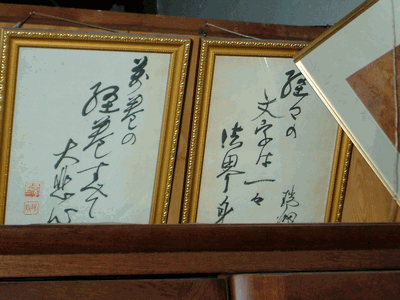 経々の
文字は一々
法界身
萬巻の
経巻すべて
大悲心